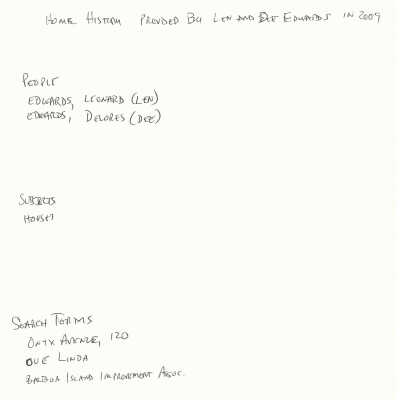 HOME HISTORY PROVIDED BY LEN AND DEE EDWARDS IN 2009
PEOPLE
EDWARDS, LEONARD (LEN)
EDWARDS, DELORES (DEE)
SUBJECTS
HOUSES
SEARCH TERMS
ONYX AVENUE, 120
QUE LINDA
BALBOA ISLAND IMPROVEMENT ASSOC.